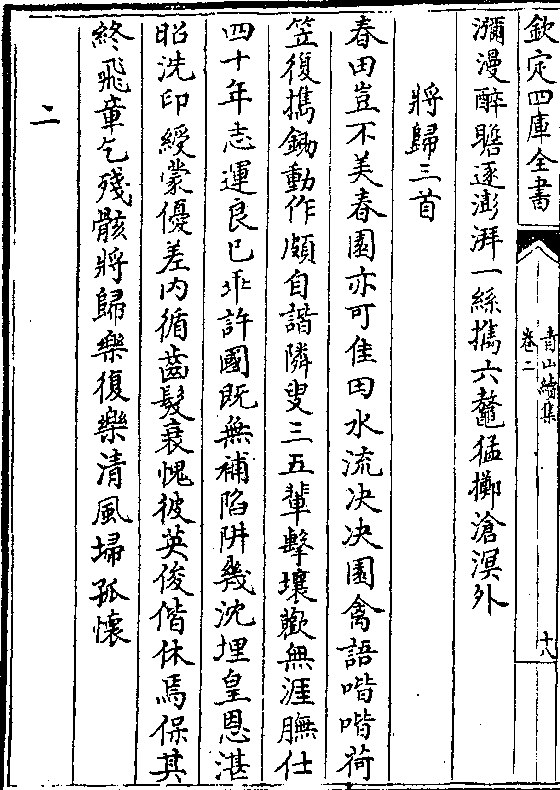 欽定四庫全書
青山續集
卷二
十八
瀰漫醉膽逐澎湃一絲擕六鼇猛擲滄溟外
將歸三首
春田豈不美春園亦可佳田水流决决園禽語喈喈荷
笠復擕鋤動作頗自諧隣叟三五輩擊壤歡無涯膴仕
四十年志運良已乖許國既無補陷阱幾沈埋皇恩湛
昭洗印綬蒙優差内循齒髮衰愧彼英俊偕休焉保其
終飛章乞殘骸將歸樂復樂清風埽孤懷
二